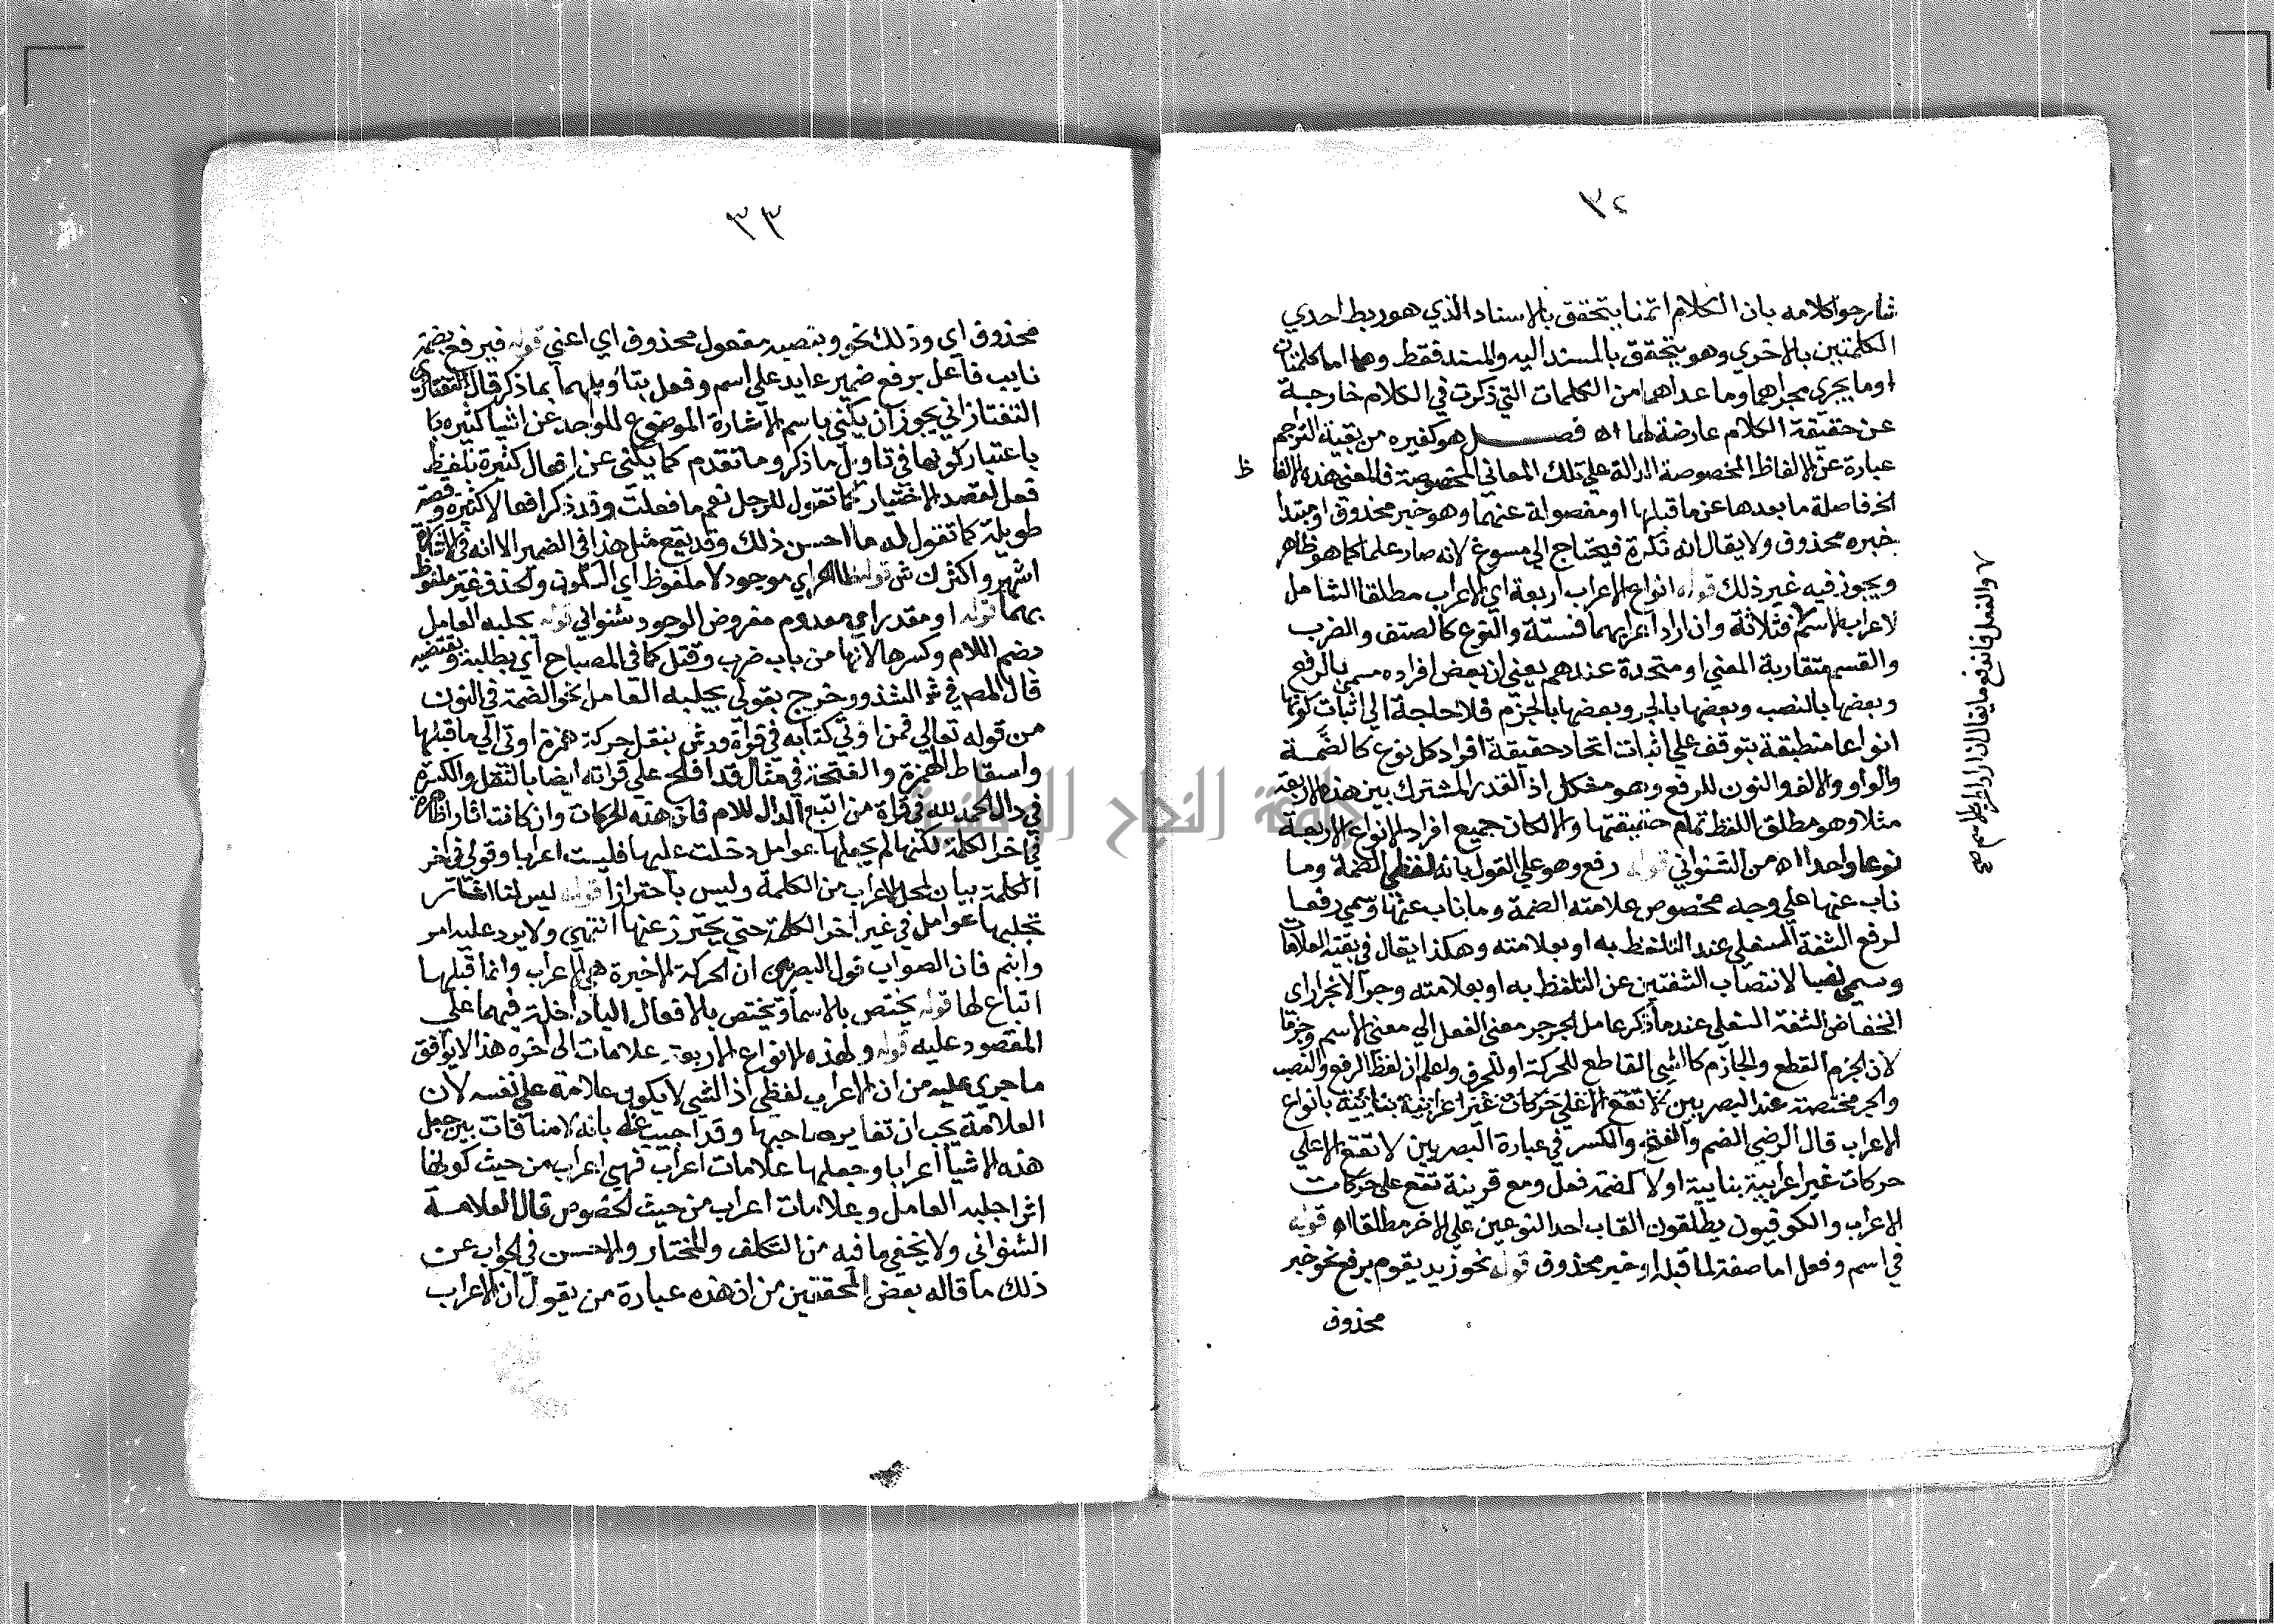 ٣٢
شارحوا كلامه بان الكلام انما يتحقق بالاسناد الذي هو ربط احدي
الكلمتين بالاخري وهو يتحقق بالمسند اليه والمسند فقط وهما اما كلمتان
او ما يجري مجراهما وما عداهما من الكلمات التي ذكرت في الكلام خارجة
عن حقيقة الكلام عارضة لها اه فصل هو كغيره من بقية التراجم
عبارة عن الالفاظ المخصوصة الدالة علي تلك المعاني المخصوصة فالمعني هذه الالفاظ
الخ فاصلة ما بعدها عن ما قبلها او مفصولة عنهما وهو خبر محذوف او مبتدا
خبره محذوف ولا يقال انه نكرة فيحتاج الي مسوغ لانه صار علما كما هو ظاهر
ويجوز فيه غير ذلك قوله انواع الاعراب اربعة اي الاعراب مطلقا الشامل
لاعراب الاسم فثلاثة وان اراد اعرابهما فستة والنوع كالصنف والضرب
والقسم متقاربة المعني او متحدة عندهم يعني ان بعض افراده مسمي بالرفع
وبعضها بالنصب وبعضها بالجر وبعضها بالجزم فلا حاجة الي اثبات كونها
انواعا منطبقة يتوقف علي اثبات اتحاد حقيقة افراد كل نوع كالضمة
والواو والالف والنون للرفع وهو مشكل اذ القدر المشترك بين هذه الاربعة
مثلا وهو مطلق اللفظ تمام حقيقتها والا لكان جميع افراد الانواع الاربعة
نوعا واحدا اه من الشنواني قوله رفع وهو علي القول بانه لفظي الضمة وما
ناب عنها علي وجه مخصوص علامته الضمة وما ناب عنها وسمي رفعا
لرفع الشفة السفلي عند التلفظ به او بعلامته وهكذا يقال في بقية العلامات
وسمي نصبا لانتصاب الشفتين عن التلفظ به او بعلامته وجرا لانجرار اي
انخفاض الشفة السفلي عند ما ذكر عامل الجر جر معني الفعل الي معني الاسم وجزما
لان الجزم القطع والجازم كالشي القاطع للحركة او للحرف واعلم ان لفظ الرفع والنصب
والجر مختصة عند البصريين لا تقع الا علي حركات غير اعرابية بنائية بانواع
الاعراب قال الرضي الضم والفتح والكسر في عبارة البصريين لا تقع الا علي
حركات غير اعرابية بنايية اولا كضمة فعل ومع قرينة تقع علي حركات
الاعراب والكوفيون يطلقون القاب احد النوعين علي الاخر مطلقا اه قوله
في اسم وفعل اما صفة لما قبله او خبر محذوف قوله نحو زيد يقوم برفع نحو خبر
محذوف
والفعل فانه نوع ما يقال اذا اراد اعراب الاسم صح
٣٣
محذوف اي وذلك نحو وبنصبه مفعول محذوف اي اعني قوله فيرفع بضمة
نايب فاعل برفع ضمير عايد علي اسم وفعل بتاويلهما بما ذكر قال التفتازاني
التفتازاني يجوز ان يكني باسم الاشارة الموضوع للواحد عن اشيا كثيره با
باعتبار كونها في تاويل ما ذكر وما تقدم كما يكني عن افعال كثيرة بلفظ
فعل لقصد الاختيار كما تقول للرجل نعم ما فعلت وقد ذكر افعالا كثيره وقصة
طويلة كما تقول له ما احسن ذلك وقد يقع مثل هذا في الضمير الا انه في الاشارة
اشهر واكثر ك ش قوله ظاهر اي موجود لا ملفوظ اي السكون والحذف غير ملفوظ
بهما قوله او مقدر اي معدوم مفروض الوجود شنواني قوله يجلبه العامل
بضم اللام وكسرها لانها من باب ضرب وقتل كما في المصباح اي يطلبه ويقتضيه
قال المص في ش الشذور وخرج بقولي يجلبه العامل نحو الضمة في النون
من قوله تعالي فمن اوتي كتابه في قراة ورش بنقل حركة همزة اوتي الي ما قبلها
واسقاط الهمزة والفتحة في مثال قد افلح علي قراته ايضا بالنقل والكسرة
في دال الحمد لله في قراة من اتبع الدال للام فان هذه الحركات وان كانت اثارا ظاهرة
في اخر الكلمة لكنها لم يجلبها عوامل دخلت عليها فليست اعرابا وقولي في اخر
الكلمة بيان لمحل الاعراب من الكلمة وليس باحترازا قوله ليس لنا اثار
تجلبها عوامل في غير اخر الكلمة حتي يحترز عنها انتهي ولا يرد عليه امر
وابنم فان الصواب قول البصريين ان الحركة الاخيرة هي الاعراب وانما قبلها
اتباع لها قوله يختص بالاسما ويختص بالافعال الباء داخلة فيهما علي
المقصود عليه قوله ولهذه الانواع الاربعة علامات الي اخره هذا لا يوافق
ما جري عليه من ان الاعراب لفظي اذ الشي لا يكون علامة علي نفسه لان
العلامة يجب ان تغاير صاحبها وقد اجيب عنه بانه لا منافات بين جعل
هذه الاشيا اعرابا وجعلها علامات اعراب فهي اعراب من حيث كونها
اثرا جلبه العامل وعلامات اعراب من حيث الخصوص قال العلامة
الشنواني ولا يخفي ما فيه من التكلف والمختار والاحسن في الجواب عن
ذلك ما قاله بعض المحققين من ان هذه عبارة من يقول ان الاعراب
جامعة النجاح الوطنية